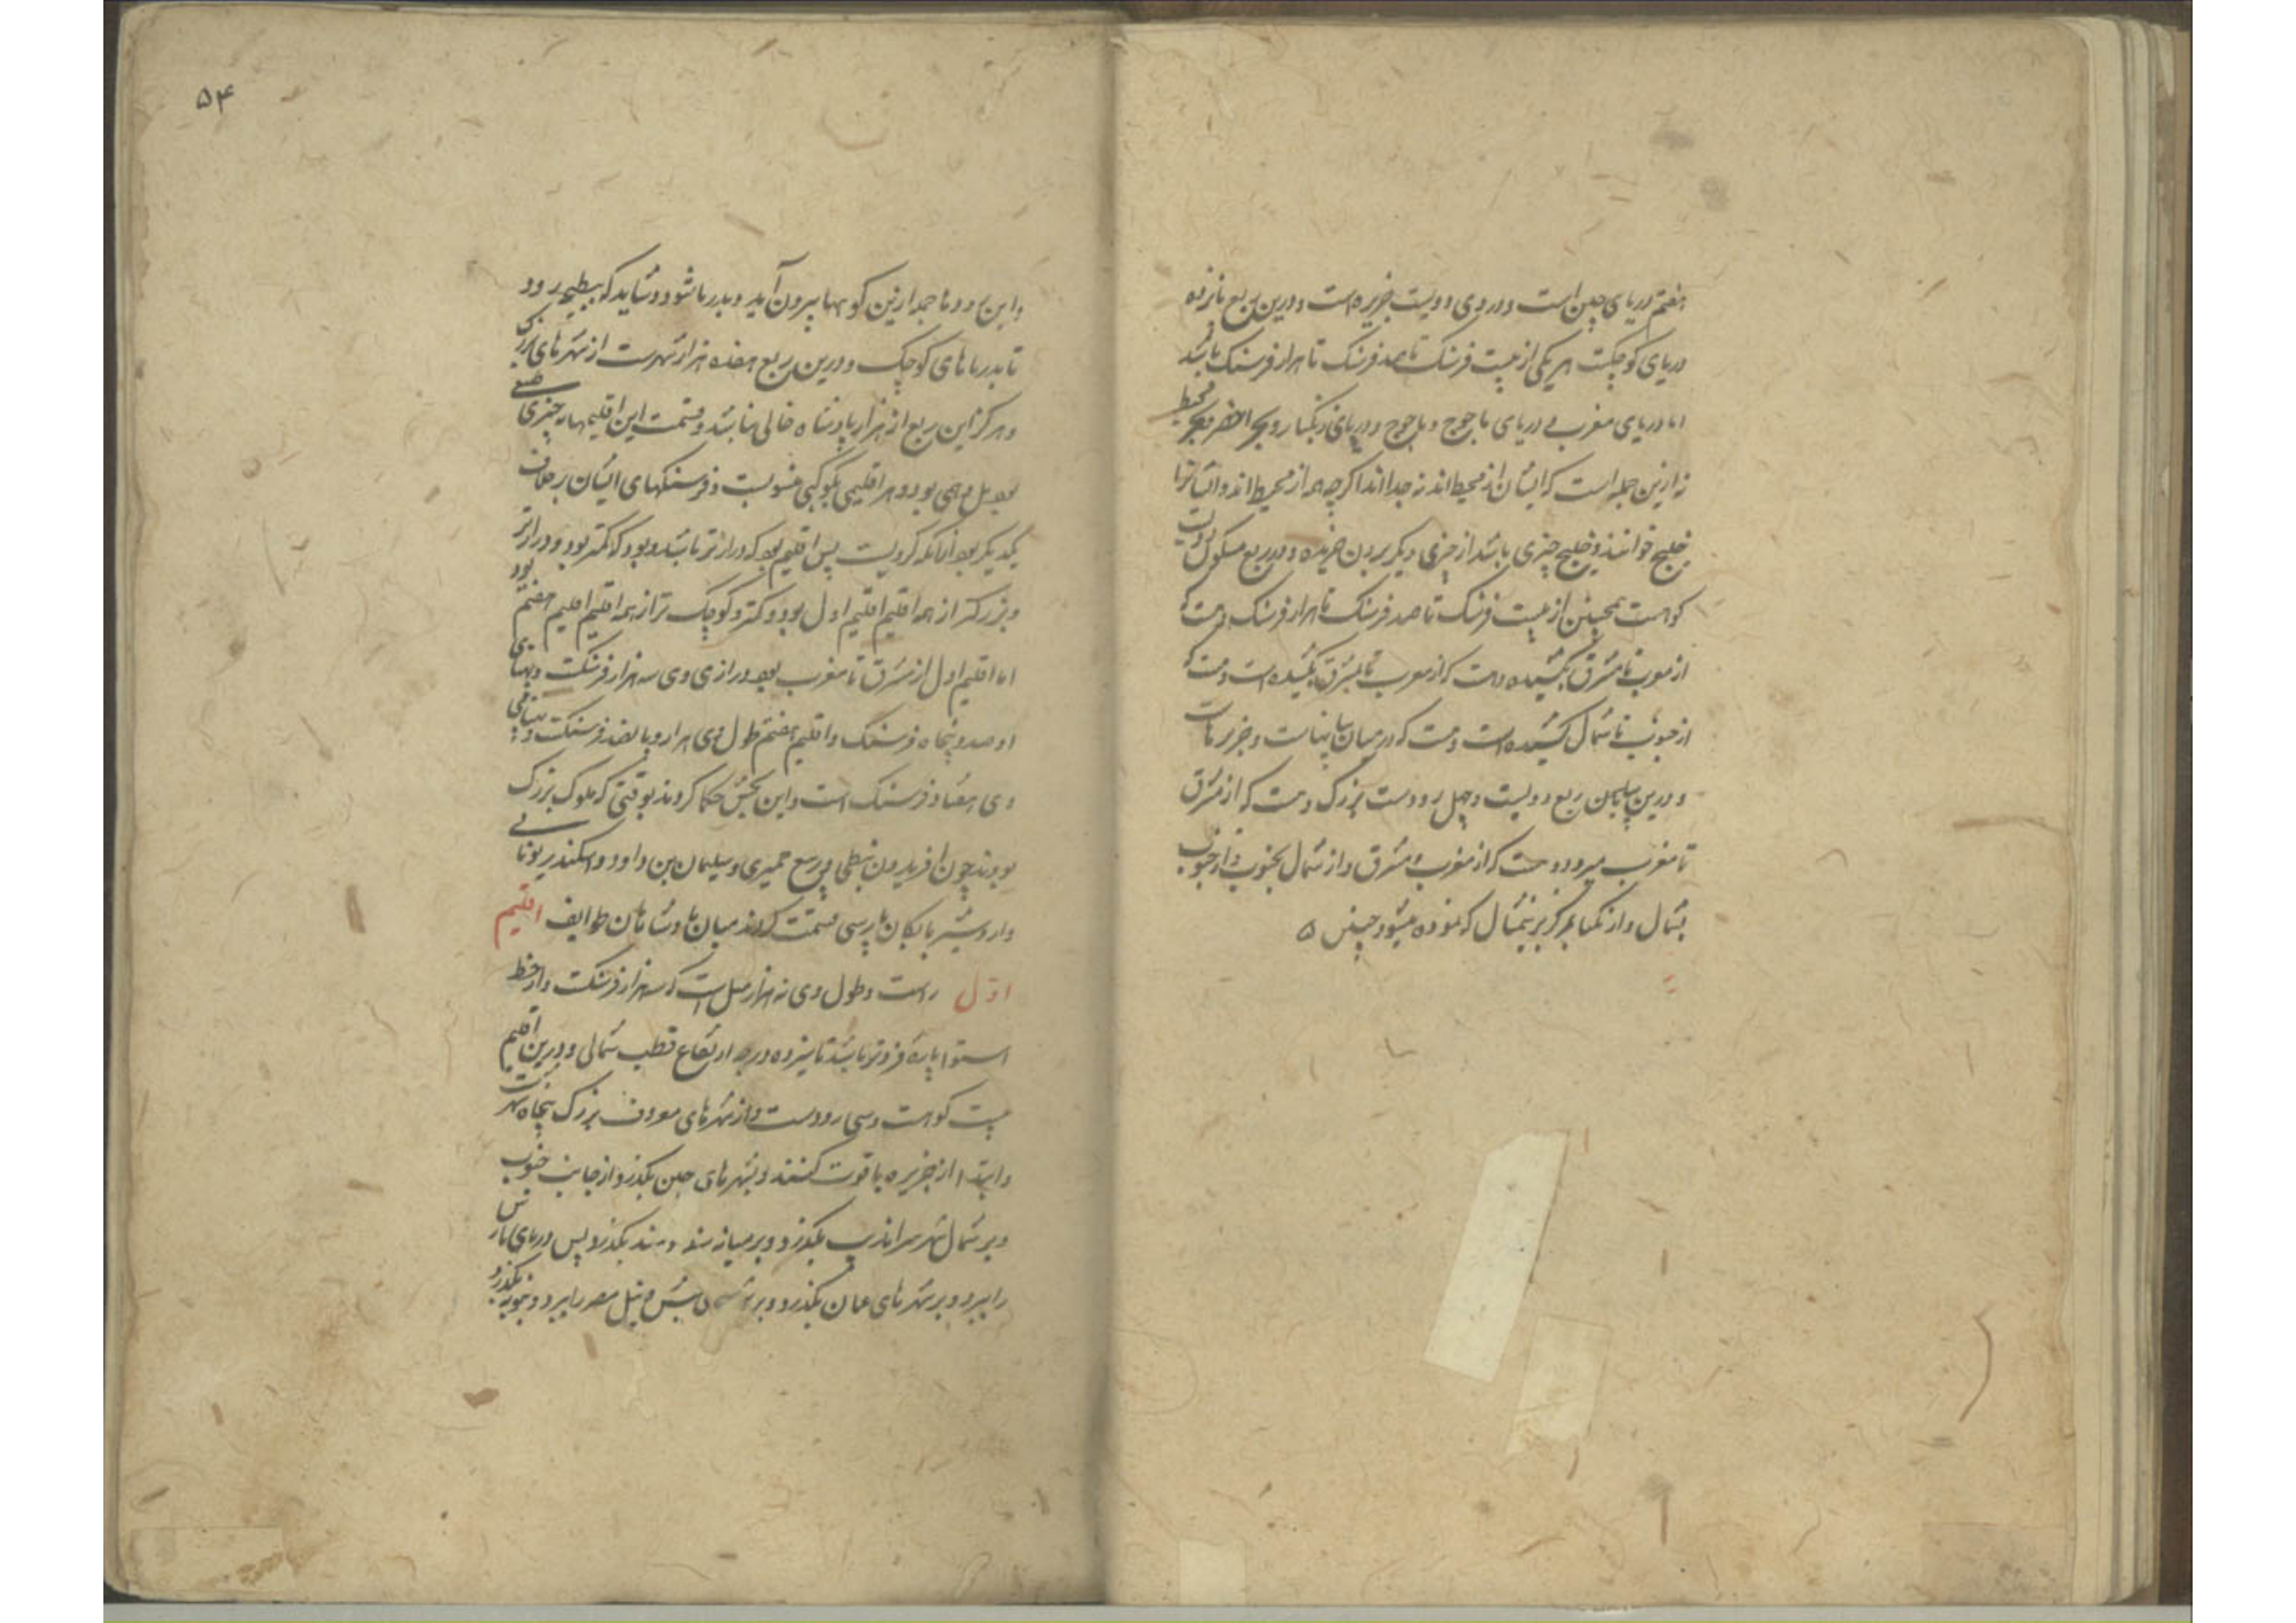 هفتم دریای چین است و در وی دویست جزیره است و درین ربع پانزده
دریای کوچکست هر یکی از بیست فرسنگ تا صد فرسنگ تا هزار فرسنگ باشد
اما دریای مغرب و دریای یاجوج و ماجوج و دریای زنگبار و بحر اخضر و بحر محیط
نه ازین جمله است که ایشان از محیط اند نه جدا اند اگرچه همه از محیط اند و ایشانرا
خلیج خوانند و خلیج چیزی باشد از چیزی دیگر بیرون و در ربع مسکون دویست
کوهست همچنین از بیست فرسنگ تا صد فرسنگ تا هزار فرسنگ و هست که
از مغرب تا مشرق بکشیده و هست که از مغرب تا بمشرق بکشیده است و هست که
از جنوب تا شمال کشیده است و هست که در میان بیابانهاست و جزیرهاست
و درین ربع دویست و چهل رودست بزرگ و هست که از مشرق
تا مغرب میرود و هست که از مغرب بمشرق و از شمال بجنوب و از جنوب
بشمال و از بمرکز برینمثال که نموده میشود چنین ۵
۵۴
و این رودها جمله ازین کوهها بیرون آید و بدریا شود و شاید که ببطیحه رود
تا بدریاهای کوچک و درین ربع هفده هزار شهرست از شهرهای بزرگ
و هرگز این ربع از هزار پادشاه خالی نباشد و قسمت این اقلیمها نه چیزی
بود و هر اقلیمی بکوکبی منسوبست و فرسنگهای ایشان برخلاف
یکدیگر بود پس اقلیم بود که درازتر باشد و بود که کمتر بود و درازتر بود
و بزرگتر از همه اقلیم اقلیم اول بود و کمتر و کوچک تر از همه اقلیم اقلیم هفتم
اما اقلیم اول از مشرق تا مغرب بود درازی وی سه هزار فرسنگست و پهنای
او صد و پنجاه فرسنگ و اقلیم هفتم طول وی هزار و پانصد فرسنگست و پهنای
وی هفتاد فرسنگ است و این بخش حکما کردند بوقتی که ملوک بزرگ
بودند چون افریدون نبطی و تبع حمیری و سلیمان بن داود و اسکندر یونانی
و اردشیر بابکان پارسی قسمت کردند میان پادشاهان طوایف اقلیم
اول راست و طول وی نه هزار میل است که سه هزار فرسنگست و از خط
استوا پاره فروتر باشد تا سیزده درجه ارتفاع قطب شمالی و درین اقلیم
بیست کوهست و سی رودست و از شهرهای معروف بزرگ پنجاه شهرست
و ابتدا از جزیره یاقوت کنند و بشهرهای چین بگذرد از جانب جنوب
و بر شمال شهر سراندیب بگذرد و بر میانه سند و هند بگذرد پس دریای پارس
را ببرد و بر شهرهای عمان بگذرد و بر حبش و نیل مصر را ببرد و بنوبه بگذرد